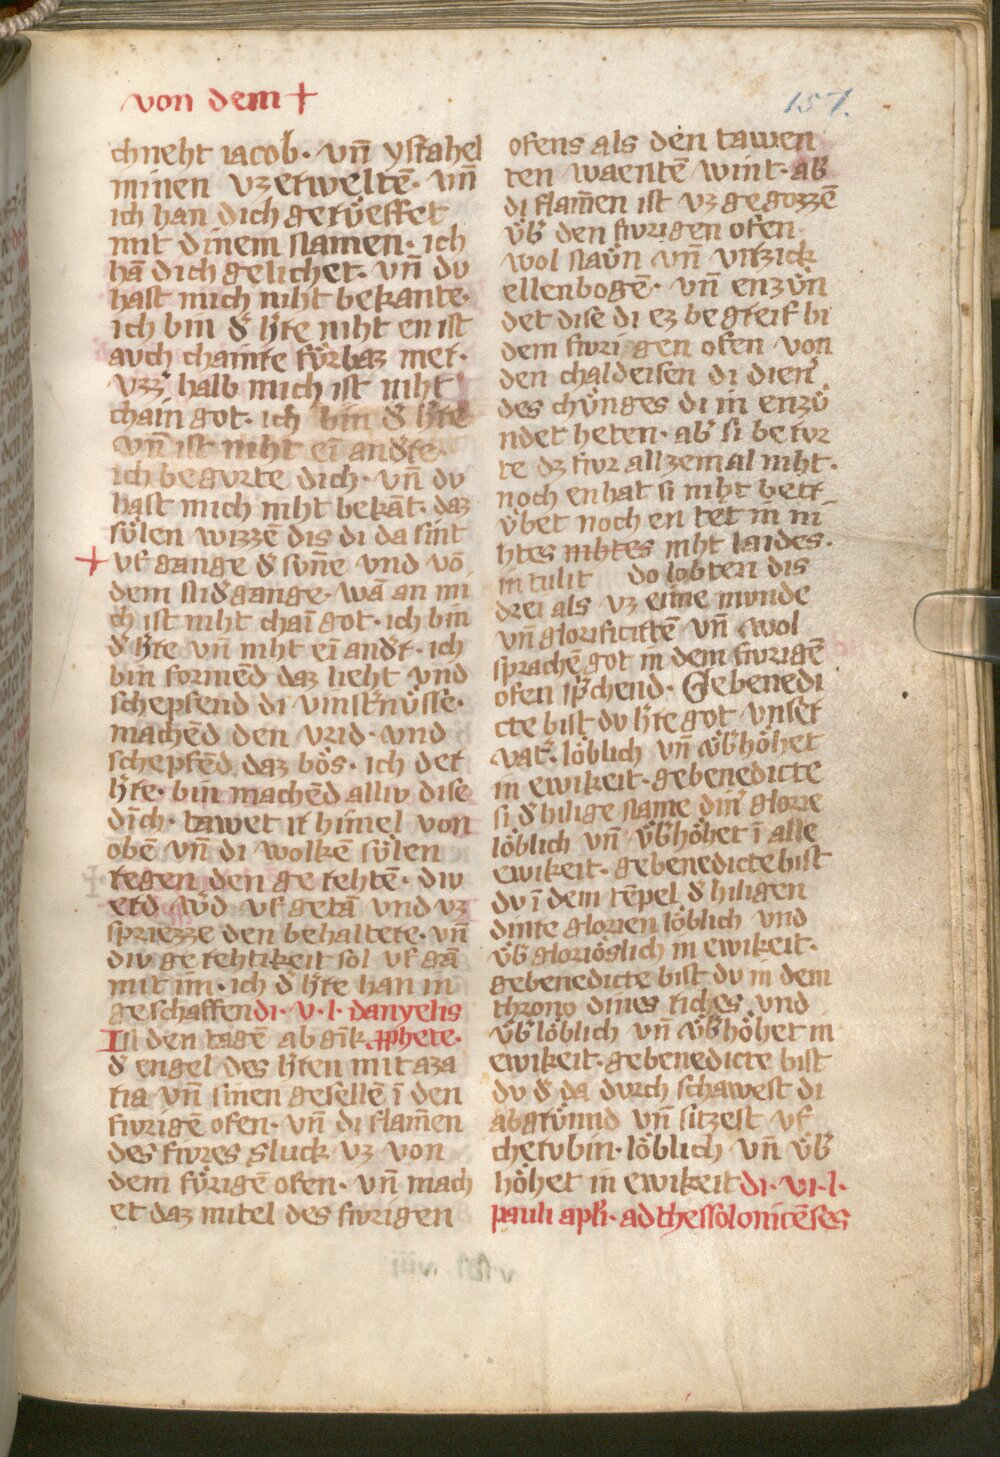 von dem +
157.
chneht iacob· vn̄ ysrahel
minen vz erweltē· vn̄
ich han dich gerv̊effet
mit dinem namen· ich
hā dich gelichet· vn̄ dv
hast mich niht bekante·
ich bin d̕ h̕re niht en ist
avch chainre fv̊rbaz mer·
vzz̕ halb mich ist niht
chain got· ich bin d̕ h̕re
vn̄ ist niht eī and̕re·
ich begvrte dich· vn̄ dv
hast mich niht bekāt· daz
sv̊len wizzē dis di da sint
+ vf gange d̕ svn̄e vnd vō
dem nid̕gange· wā an mi
ch ist niht chaī got· ich bin
d̕ h̕re vn̄ niht eī and̕r· ich
bin formēd daz lieht vnd
schepfend di vinst̕nv̊sse·
machēd den vrid· vnd
schepfēd daz bo̊s· ich der
h̕re· bin machēd alliv dise
dīch· tawet ir himel von
obē vn̄ di wolkē sv̊len
regen den gerehtē· div
erd w̕d vf getā vnd vz
spriezze den behaltere· vn̄
div gerehtikeit sol vf gā
mit im· ich d̕ h̕re han in
geschaffen di· v· l· danyelis
In den tagē ab gīk pphete·
d̕ engel des h̕ren mit aza
ria vn̄ sinen gesellē ī den
fivrigē ofen· vn̄ di flam̄en
des fivres sluck vz von
dem fv̊rigē ofen· vn̄ mach
et daz mitel des fivrigen
ofens als den tawen
ten waentē wint· ab̕
di flam̄en ist vz gegozzē
v̊b̕ den fivrigen ofen
wol nav̊n vn̄ virzick
ellenbogē· vn̄ enzv̊n
det dise di ez begreif bi
dem fivrigen ofen von
den chaldeisen di dien̕
des chv̊nges di in enzv̊
ndet heten· ab̕ si bervr
te dz fivr allzemal niht·
noch enhat si niht betr
v̊bet noch en tet in ni
htes nihtes niht laides·
intulit do lobten dis
drei als vz eime mvnde
vn̄ glorificirtē vn̄ wol
sprachē got in dem fivrigē
ofen sp̕chend· Gebenedi
cte bist dv h̕re got vnser
vat̕· lo̊blich vn̄ v̊b̕ho̊het
in ewikeit· gebenedicte
si d̕ hilige name din̕ glorie
lo̊blich vn̄ v̊b̕ho̊het ī alle
ewikeit· gebenedicte bist
dv ī dem tēpel d̕ hiligen
dinre glorien lo̊blich vnd
v̊b̕ glorio̊slich in ewikeit·
gebenedicte bist dv in dem
throno dines riches vnd
v̊b̕ lo̊blich vn̄ v̊b̕ho̊het in
ewikeit· gebenedicte bist
dv d̕ da dvrch schawest di
abgrv̊nnd vn̄ sitzest vf
chervbin· lo̊blich vn̄ v̊b̕
ho̊het in ewikeit di· vi· l·
pauli apl̕i· ad thessolonicēses